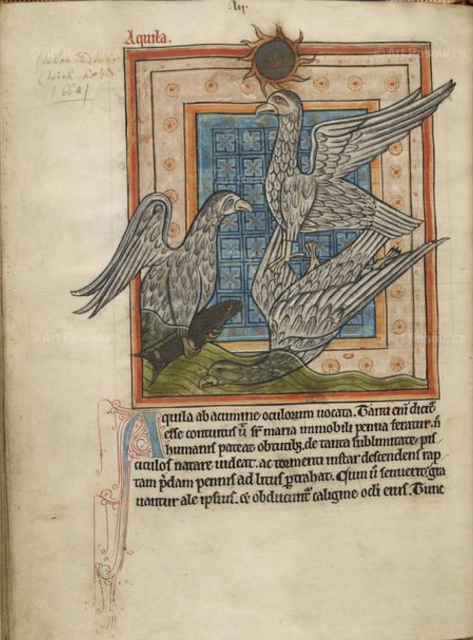 Aquila.
Aquila ab acumine oculorum uocata. Tanti eni dicit͛
esse contuitus ũ sr maria immobili penna feratur. ñ
humanis pateat obtutib; de tanta sublimitate pis
ciculos natare uideat. ac tormenti instar descendens rap
tam p̃dam pennis ad litus ptrahat. Cum ũ senuerit gra
uantur ale ipsius. & obducunt caligine oculi eius. Tunc